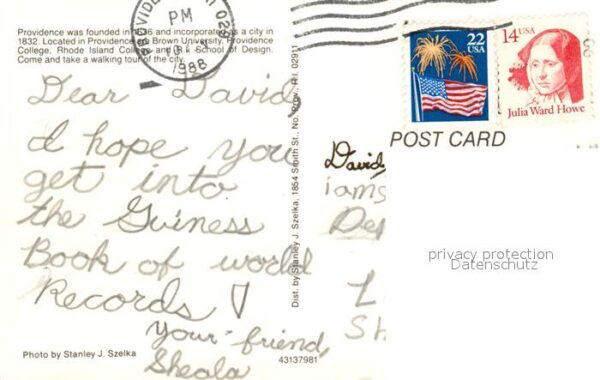 PROVIDEN RI 029
PM
1988
22
USA
14 USA
Julia Ward Howe
Providence was founded in 1636 and incorporated as a city in
1832. Located in Providence are Brown University, Providence
College, Rhode Island College and R.I. School of Design.
Come and take a walking tour of the city.
POST CARD
Dear David,
I hope you
get into
the Guiness
Book of world
Records!
your friend,
Sheala
Dist. by Stanley J. Szelka, 1854 Smith St., No. Prov., R.I. 02911
David
iams
De
L
Sh
privacy protection
Datenschutz
Photo by Stanley J. Szelka
43137981